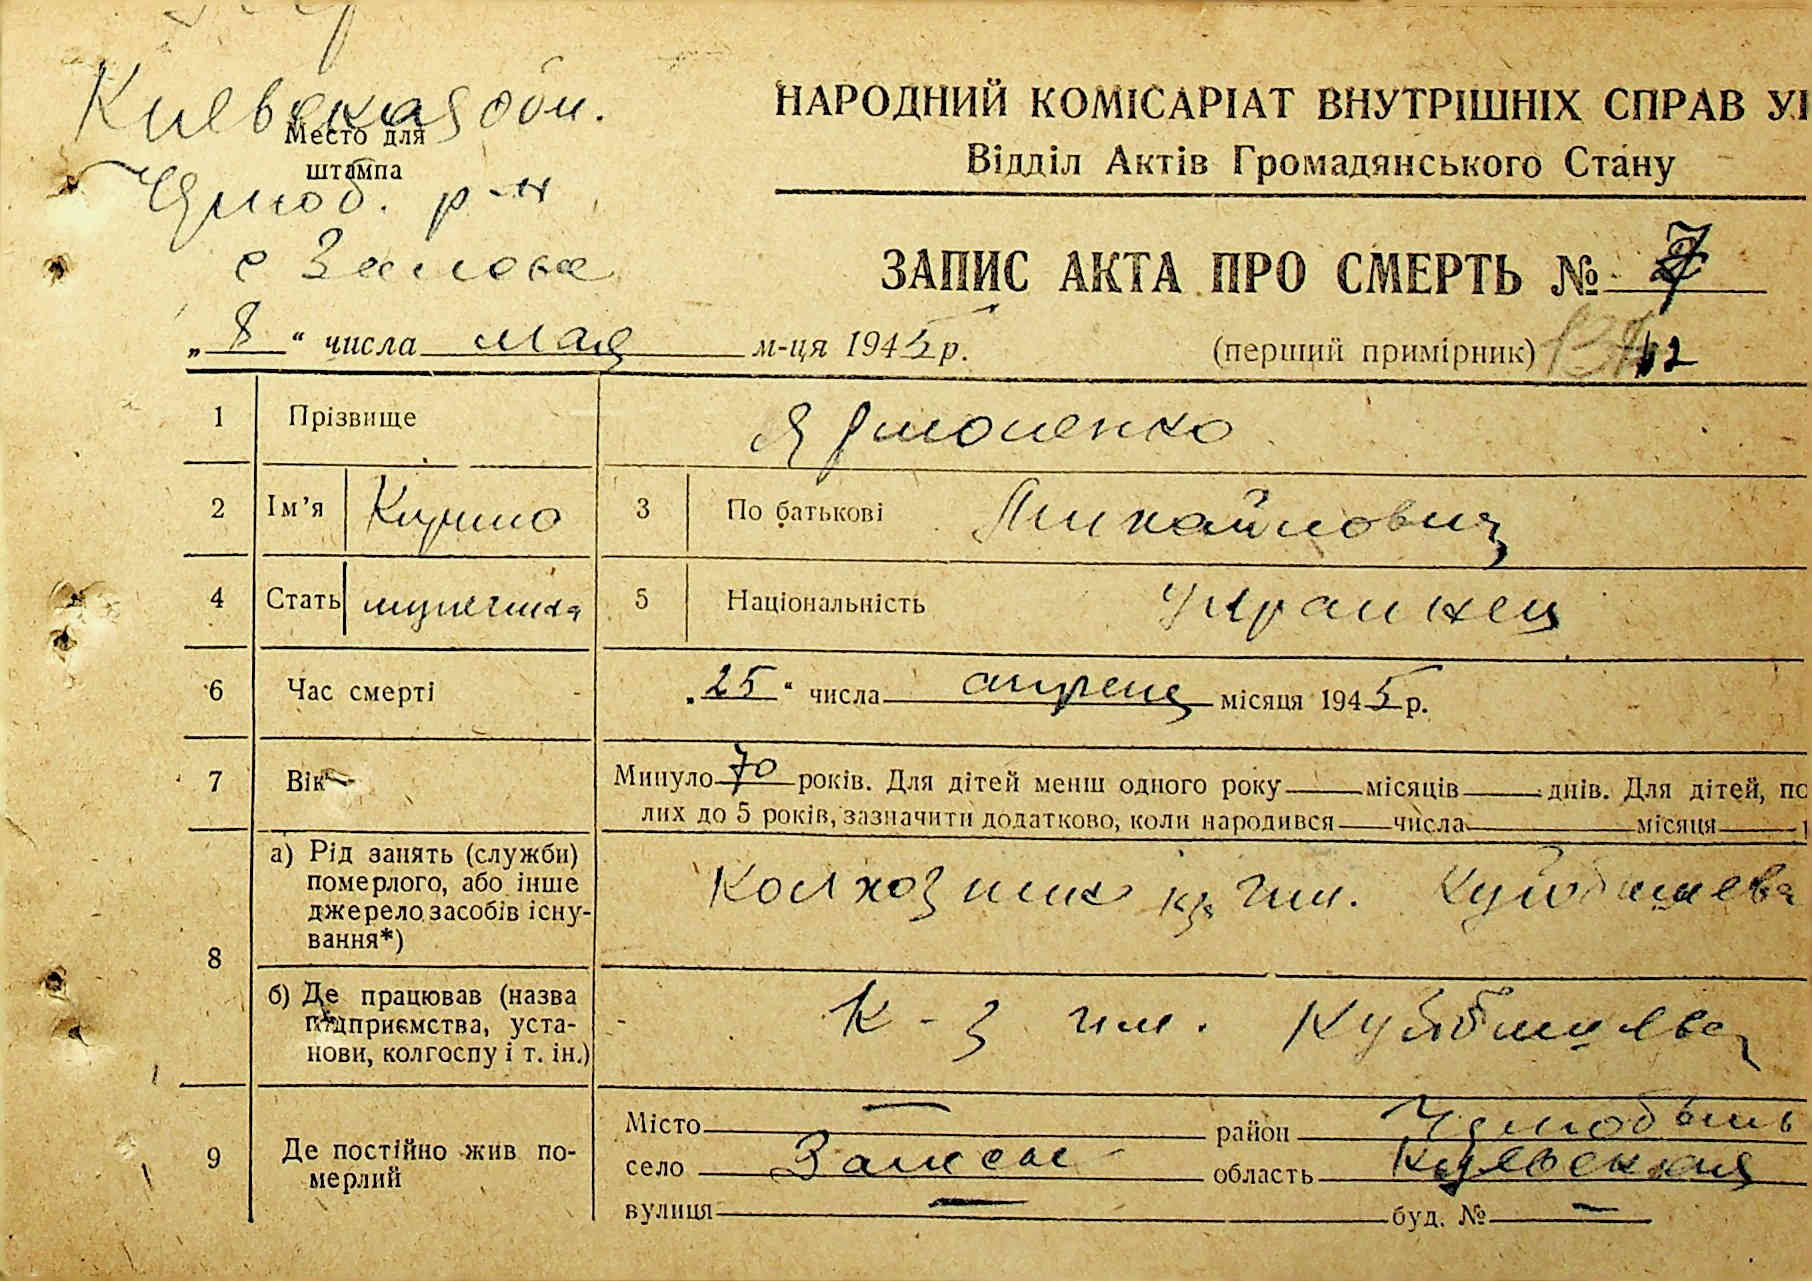 Киевская обл.
Место для
штампа
Черноб. р-н
с Залесье
НАРОДНИЙ КОМІСАРІАТ ВНУТРІШНІХ СПРАВ УІ
Відділ Актів Громадянського Стану
ЗАПИС АКТА ПРО СМЕРТЬ № 7
„8“ числа мая м-ця 1945 р.
(перший примірник)
1 Прізвище Ярмоленко
2 Ім'я Кирило 3 По батькові Михайлович
4 Стать мужчина 5 Національність Украинец
6 Час смерті „25“ числа апреля місяця 1945 р.
7 Вік Минуло 70 років. Для дітей менш одного року місяців днів. Для дітей, по
лих до 5 років, зазначити додатково, коли народився числа місяця
8 а) Рід занять (служби)
померлого, або інше
джерело засобів існу-
вання*)
Колхозник к-за им. Куйбишева
б) Де працював (назва
підприємства, уста-
нови, колгоспу і т. ін.)
К-з им. Куйбишева
9 Де постійно жив по-
мерлий
Місто — район Чернобыль
село Залесье область Киевская
вулиця — буд. № —